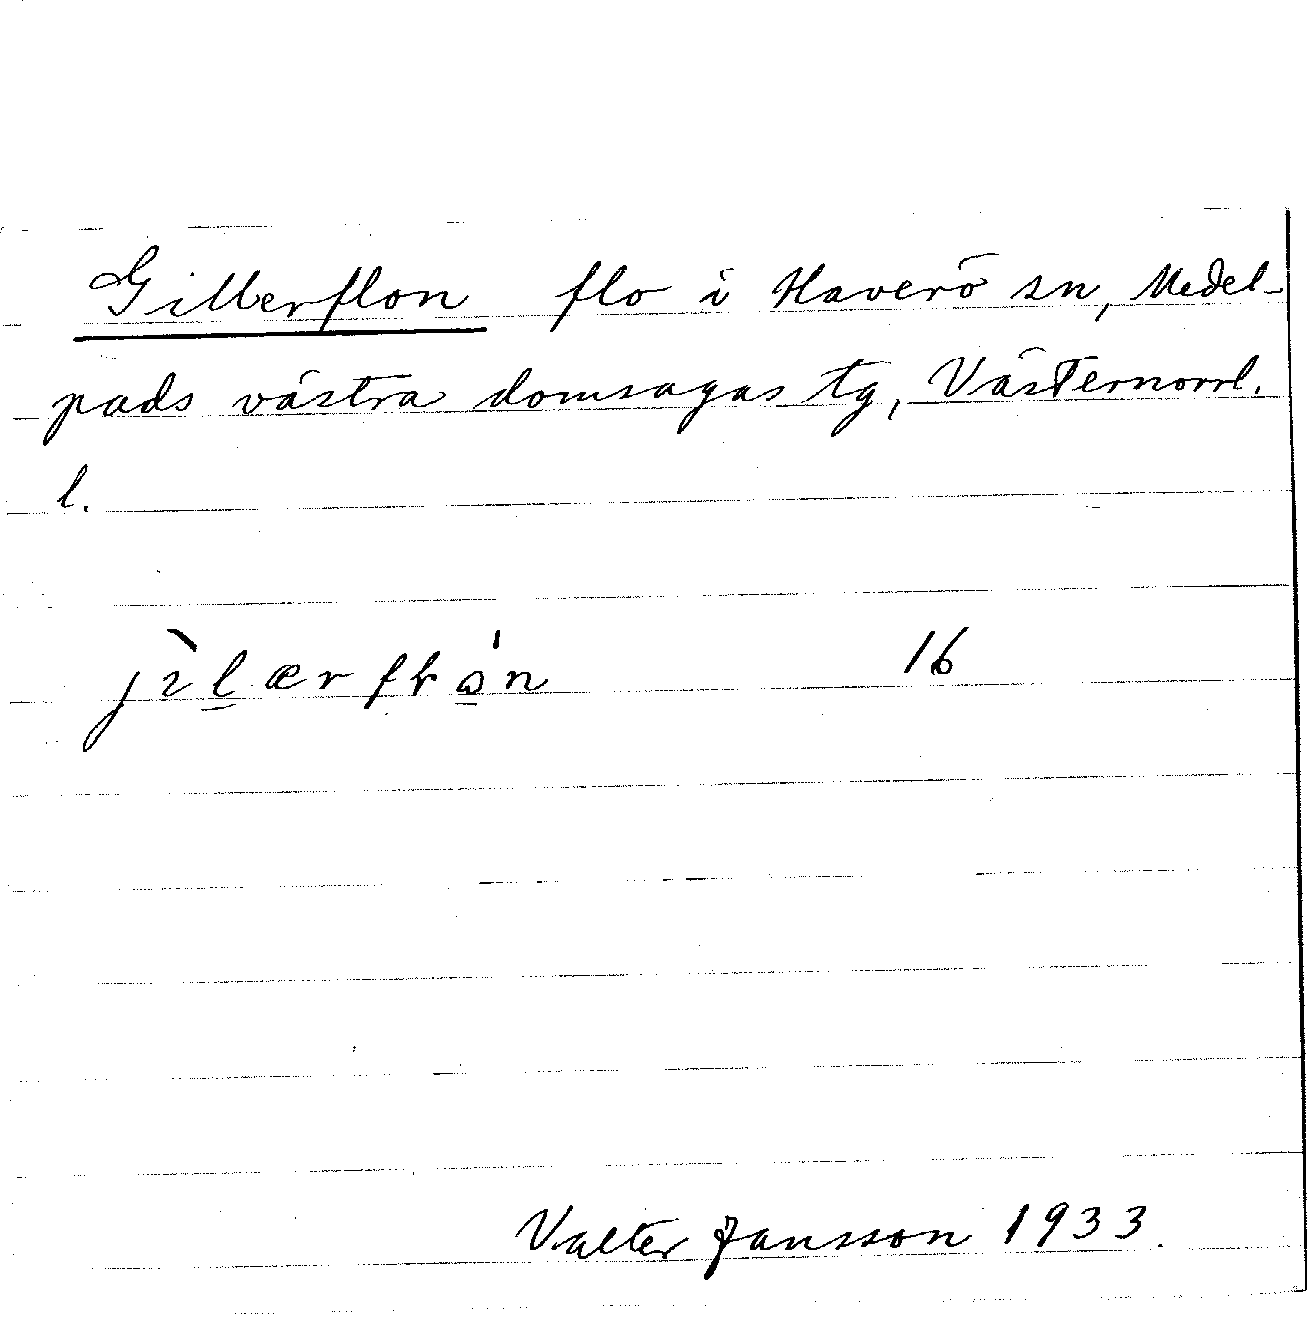 Gillerflon flo i Haverö sn, Medel-
pads västra domsagas tg, Västernorrl.
l.
16
Valter Jansson 1933.